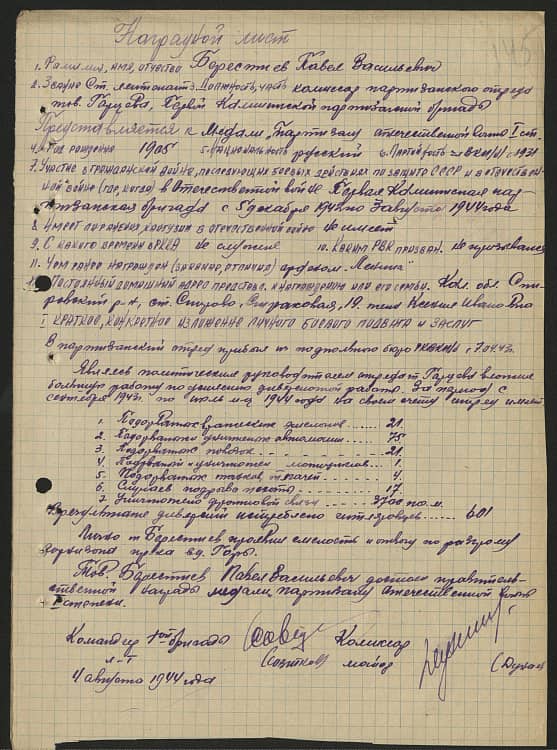 145
Наградной лист
1. Фамилия, имя, отчество Берестнев Павел Васильевич
2. Звание Ст. лейтенант 3. Должность, часть комиссар партизанского отряда
тов. Первой Калининской партизанской бригады
Представляется к Медали "Партизану отечественной войны I ст.
4. Год рождения 1905 5. Национальность русский 6. Партийность ВКП(б) с 1931
7. Участие в гражданской войне, последующих боевых действиях по защите СССР и в отечествен
ной войне (где, когда) в Отечественной войне Первая Калининская пар-
тизанская бригада с 5 декабря по 3 августа 1944 года
8. Имеет ли ранения, контузии в отечественной войне не имеет
9. С какого времени в РККА не служил 10. Каким РВК призван. не призывался
11. Чем ранее награжден (за какие отличия) орденом "Ленина"
Постоянный домашний адрес представл. к награждению или его семьи. Кал. обл. Спи-
ровский р-н, ст. Спирово, 19. Ксения Ивановна
I Краткое, конкретное изложение личного боевого подвига и заслуг
В партизанский отряд прибыл из подпольного бюро РКВКП/б с 7.04.43г.
Являясь политическим руководителем отряда т. вложил
большую работу по усилению диверсионной работы. За период с
сентября 1943г. по июль м-ц 1944 года на своем счету отряд имеет
1. Подорвано вражеских эшелонов ...... 21.
2. Подорвано и уничтожено автомашин ... 75
3. Подорвано повозок ..... 21
4. Подорвано и уничтожен мотоциклов... 1
5. Подорвано танков, тягачей ... 4
6. Случаев подрыва пехоты ...... 17
7. Уничтожено фронтовой связи ... 3700 п.м.
В результате диверсий истреблено гитлеровцев...... 601
Лично т. Берестнев проявил смелость и отвагу по разгрому
гарнизона врага в д. Горы.
Тов. Берестнев Павел Васильевич достоин правитель-
ственной награды медали партизану Отечественной войны
I степени.
Командир 1ой бригады Комиссар
п-п майор
4 августа 1944 года